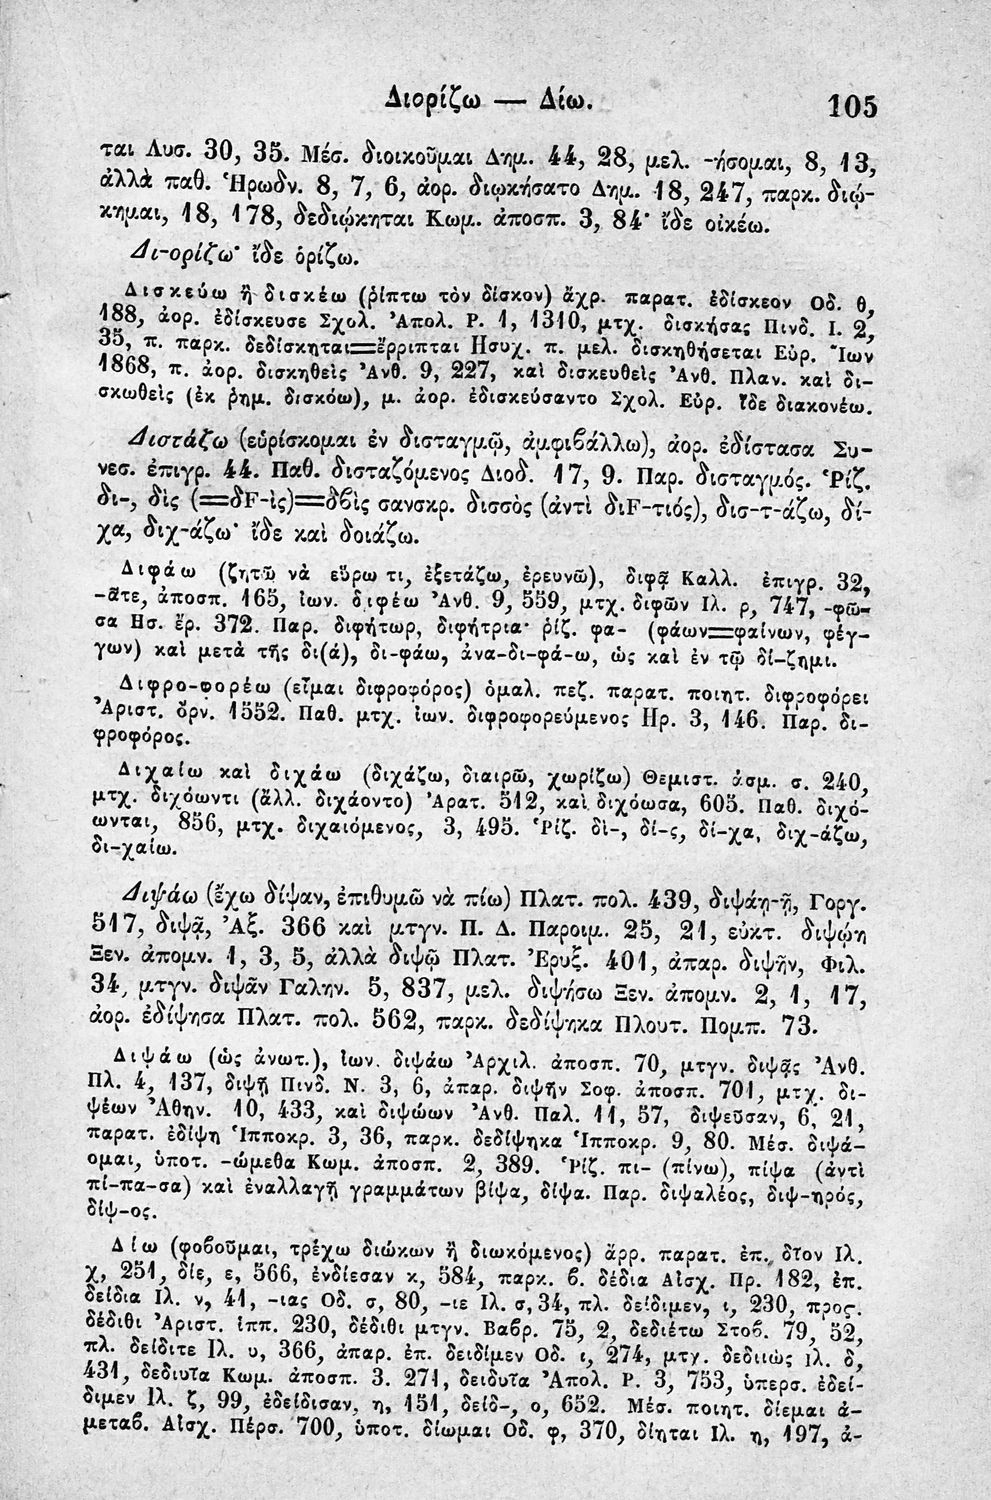 Διορίζω — Δίω.
105
ται Λυσ. 30, 35. Μέσ. διοικοῦμαι Δημ. 44, 28, μελ. -ήσομαι, 8, 13,
ἀλλὰ παθ. Ἡρωδν. 8, 7, 6, ἀορ. διῳκήσατο Δημ. 18, 247, παρκ. διῴ-
κημαι, 18, 178, δεδιῴκηται Κωμ. ἀποσπ. 3, 84· ἴδε οἰκέω.
Δι-ορίζω· ἴδε ὁρίζω.
Δισκεύω ἢ δισκέω (ῥίπτω τὸν δίσκον) ἄχρ. παρατ. ἐδίσκεον Οδ. θ,
188, ἀορ. ἐδίσκευσε Σχολ. Ἀπολ. Ρ. 1, 1310, μτχ. δισκήσας Πινδ. Ι. 2,
35, π. παρκ. δεδίσκηται=ἔρριπται Ησυχ. π. μελ. δισκηθήσεται Εὐρ. Ἴων
1868, π. ἀορ. δισκηθεὶς Ἀνθ. 9, 227, καὶ δισκευθεὶς Ἀνθ. Πλαν. καὶ δι-
σκωθεὶς (ἐκ ῥημ. δισκόω), μ. ἀορ. ἐδισκεύσαντο Σχολ. Εὐρ. ἴδε διακονέω.
Διστάζω (εὑρίσκομαι ἐν δισταγμῷ, ἀμφιβάλλω), ἀορ. ἐδίστασα Συ-
νεσ. ἐπιγρ. 44. Παθ. δισταζόμενος Διοδ. 17, 9. Παρ. δισταγμός. Ῥίζ.
δι-, δὶς (=δF-ὶς)=δβὶς σανσκρ. δισσὸς (ἀντὶ διF-τιός), δισ-τ-άζω, δί-
χα, διχ-άζω· ἴδε καὶ δοιάζω.
Διφάω (ζητῶ νὰ εὕρω τι, ἐξετάζω, ἐρευνῶ), διφᾷ Καλλ. ἐπιγρ. 32,
-ᾶτε, ἀποσπ. 165, ἰων. διφέω Ἀνθ. 9, 559, μτχ. διφῶν Ιλ. ρ, 747, -φῶ-
σα Ησ. ἔρ. 372. Παρ. διφήτωρ, διφήτρια· ῥίζ. φα- (φάων=φαίνων, φέγ-
γων) καὶ μετὰ τῆς δι(ά), δι-φάω, ἀνα-δι-φά-ω, ὡς καὶ ἐν τῷ δί-ζημι.
Διφρο-φορέω (εἶμαι διφροφόρος) ὁμαλ. πεζ. παρατ. ποιητ. διφροφόρει
Ἀριστ. ὄρν. 1552. Παθ. μτχ. ἰων. διφροφορεύμενος Ηρ. 3, 146. Παρ. δι-
φροφόρος.
Διχαίω καὶ διχάω (διχάζω, διαιρῶ, χωρίζω) Θεμιστ. ἀσμ. σ. 240,
μτχ. διχόωντι (ἄλλ. διχάοντο) Ἀρατ. 512, καὶ διχόωσα, 605. Παθ. διχό-
ωνται, 856, μτχ. διχαιόμενος, 3, 495. Ῥίζ. δὶ-, δί-ς, δί-χα, διχ-άζω,
δι-χαίω.
Διψάω (ἔχω δίψαν, ἐπιθυμῶ νὰ πίω) Πλατ. πολ. 439, διψάῃ-ῇ, Γοργ.
517, διψᾷ, Ἀξ. 366 καὶ μτγν. Π. Δ. Παροιμ. 25, 21, εὐκτ. διψῴη
Ξεν. ἀπομν. 1, 3, 5, ἀλλὰ διψῷ Πλατ. Ἐρυξ. 401, ἀπαρ. διψῆν, Φιλ.
34, μτγν. διψᾶν Γαλην. 5, 837, μελ. διψήσω Ξεν. ἀπομν. 2, 1, 17,
ἀορ. ἐδίψησα Πλατ. πολ. 562, παρκ. δεδίψηκα Πλουτ. Πομπ. 73.
Διψάω (ὡς ἀνωτ.), ἰων. διψάω Ἀρχιλ. ἀποσπ. 70, μτγν. διψᾷς Ἀνθ.
Πλ. 4, 137, διψῇ Πινδ. Ν. 3, 6, ἀπαρ. διψῆν Σοφ. ἀποσπ. 701, μτχ. δι-
ψέων Ἀθην. 10, 433, καὶ διψώων Ἀνθ. Παλ. 11, 57, διψεῦσαν, 6, 21,
παρατ. ἐδίψη Ἱπποκρ. 3, 36, παρκ. δεδίψηκα Ἱπποκρ. 9, 80. Μέσ. διψά-
ομαι, ὑποτ. -ώμεθα Κωμ. ἀποσπ. 2, 389. Ῥίζ. πι- (πίνω), πίψα (ἀντὶ
πί-πα-σα) καὶ ἐναλλαγῇ γραμμάτων βίψα, δίψα. Παρ. διψαλέος, διψ-ηρός,
δίψ-ος.
Δίω (φοβοῦμαι, τρέχω διώκων ἢ διωκόμενος) ἄρρ. παρατ. ἐπ. δῖον Ιλ.
χ, 251, δίε, ε, 566, ἐνδίεσαν κ, 584, παρκ. β. δέδια Αἰσχ. Πρ. 182, ἐπ.
δείδια Ιλ. ν, 41, -ιας Οδ. σ, 80, -ιε Ιλ. σ, 34, πλ. δείδιμεν, ι, 230, προς.
δέδιθι Ἀριστ. ἱππ. 230, δέδιθι μτγν. Βαβρ. 75, 2, δεδιέτω Στοβ. 79, 52,
πλ. δείδιτε Ιλ. υ, 366, ἀπαρ. ἐπ. δειδίμεν Οδ. ι, 274, μτχ. δεδιιὼς Ιλ. δ,
431, δεδιυῖα Κωμ. ἀποσπ. 3. 271, δειδυῖα Ἀπολ. Ρ. 3, 753, ὑπερσ. ἐδεί-
διμεν Ιλ. ζ, 99, ἐδείδισαν, η, 151, δείδ-, ο, 652. Μέσ. ποιητ. δίεμαι ἀ-
μεταβ. Αἰσχ. Πέρσ. 700, ὑποτ. δίωμαι Οδ. φ, 370, δίηται Ιλ. η, 197, ἀ-